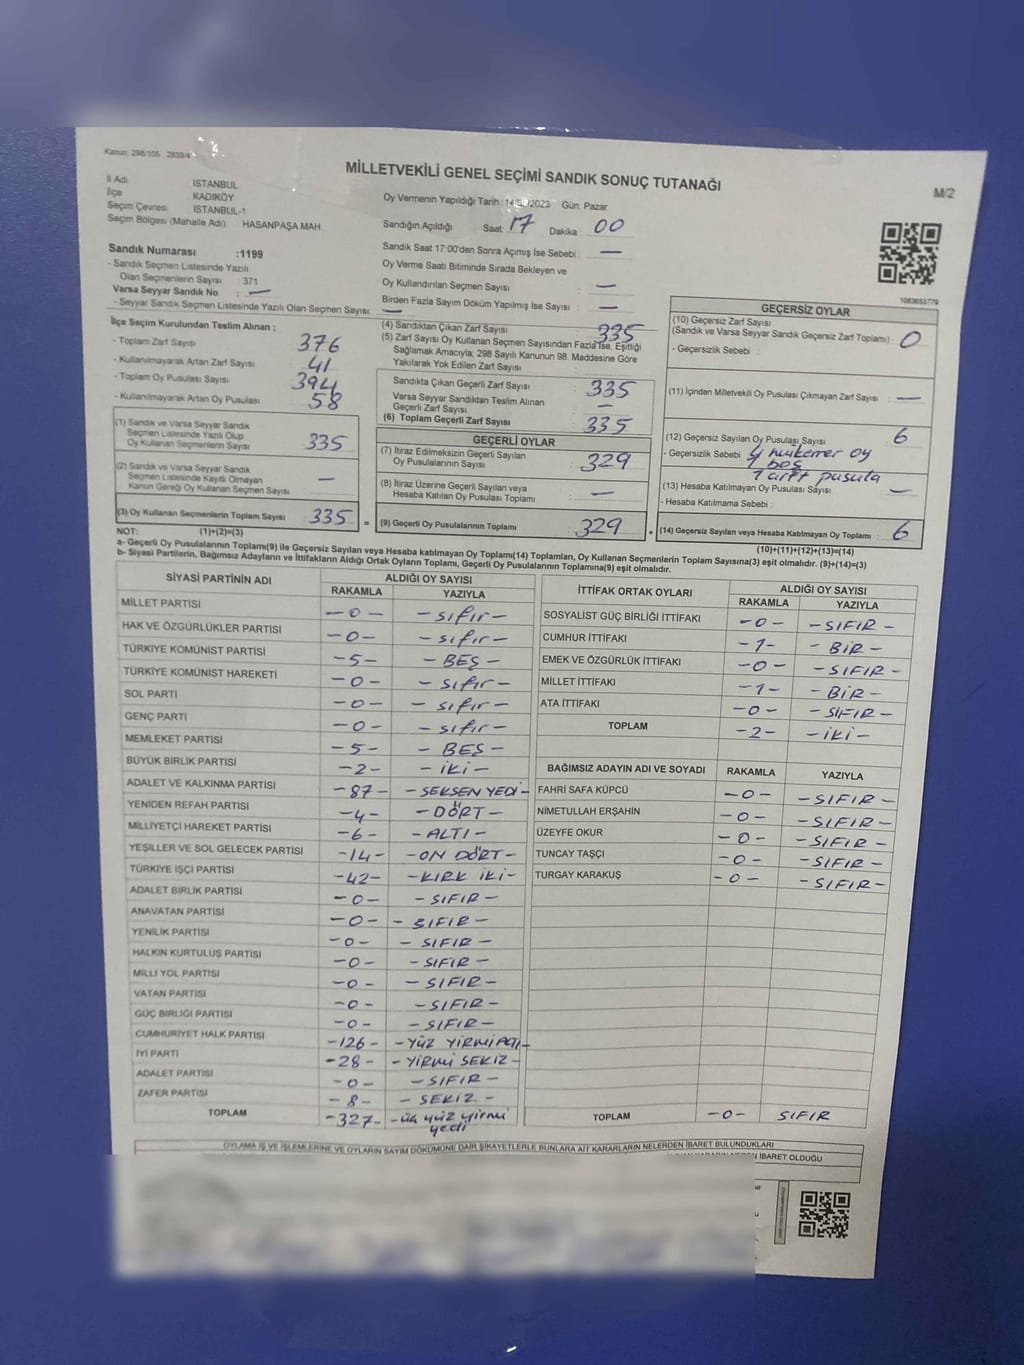 Kanun: 298/105 , 2839/4
MİLLETVEKİLİ GENEL SEÇİMİ SANDIK SONUÇ TUTANAĞI
M/2
İl Adı İSTANBUL
İlçe KADIKÖY
Seçim Çevresi İSTANBUL-1
Seçim Bölgesi (Mahalle Adı) HASANPAŞA MAH
Sandık Numarası :1199
- Sandık Seçmen Listesinde Yazılı
Olan Seçmenlerin Sayısı 371
Varsa Seyyar Sandık No : —
- Seyyar Sandık Seçmen Listesinde Yazılı Olan Seçmen Sayısı —
Oy Vermenin Yapıldığı Tarih: 14/05/2023 Gün: Pazar
Sandığın Açıldığı Saat 17 Dakika 00
Sandık Saat 17:00'den Sonra Açılmış İse Sebebi : —
Oy Verme Saati Bitiminde Sırada Bekleyen ve
Oy Kullandırılan Seçmen Sayısı : —
Birden Fazla Sayım Döküm Yapılmış İse Sayısı : —
1083653779
İlçe Seçim Kurulundan Teslim Alınan ;
- Toplam Zarf Sayısı : 376
- Kullanılmayarak Artan Zarf Sayısı : 41
- Toplam Oy Pusulası Sayısı : 394
- Kullanılmayarak Artan Oy Pusulası : 58
(1) Sandık ve Varsa Seyyar Sandık
Seçmen Listesinde Yazılı Olup
Oy Kullanan Seçmenlerin Sayısı : 335
(2) Sandık ve Varsa Seyyar Sandık
Seçmen Listesinde Kayıtlı Olmayan
Kanun Gereği Oy Kullanan Seçmen Sayısı : —
(3) Oy Kullanan Seçmenlerin Toplam Sayısı : 335 =
(4) Sandıktan Çıkan Zarf Sayısı : 335
(5) Zarf Sayısı Oy Kullanan Seçmen Sayısından Fazla İse, Eşitliği
Sağlamak Amacıyla; 298 Sayılı Kanunun 98. Maddesine Göre
Yakılarak Yok Edilen Zarf Sayısı :
Sandıkta Çıkan Geçerli Zarf Sayısı : 335
Varsa Seyyar Sandıktan Teslim Alınan
Geçerli Zarf Sayısı : —
(6) Toplam Geçerli Zarf Sayısı : 335
GEÇERLİ OYLAR
(7) İtiraz Edilmeksizin Geçerli Sayılan
Oy Pusulalarının Sayısı : 329
(8) İtiraz Üzerine Geçerli Sayılan veya
Hesaba Katılan Oy Pusulası Toplamı : —
(9) Geçerli Oy Pusulalarının Toplamı : 329 +
GEÇERSİZ OYLAR
(10) Geçersiz Zarf Sayısı
(Sandık ve Varsa Seyyar Sandık Geçersiz Zarf Toplamı) : 0
- Geçersizlik Sebebi :
(11) İçinden Milletvekili Oy Pusulası Çıkmayan Zarf Sayısı : —
(12) Geçersiz Sayılan Oy Pusulası Sayısı : 6
- Geçersizlik Sebebi 4 mükerrer oy
1 boş
1 çift pusula
(13) Hesaba Katılmayan Oy Pusulası Sayısı : —
- Hesaba Katılmama Sebebi :
(14) Geçersiz Sayılan veya Hesaba Katılmayan Oy Toplamı : 6
NOT: (1)+(2)=(3) (10)+(11)+(12)+(13)=(14)
a- Geçerli Oy Pusulalarının Toplamı(9) ile Geçersiz Sayılan veya Hesaba katılmayan Oy Toplamı(14) Toplamları, Oy Kullanan Seçmenlerin Toplam Sayısına(3) eşit olmalıdır. (9)+(14)=(3)
b- Siyasi Partilerin, Bağımsız Adayların ve İttifakların Aldığı Ortak Oyların Toplamı, Geçerli Oy Pusulalarının Toplamına(9) eşit olmalıdır.
SİYASİ PARTİNİN ADI ALDIĞI OY SAYISI
RAKAMLA YAZIYLA
MİLLET PARTİSİ -0- -sıfır-
HAK VE ÖZGÜRLÜKLER PARTİSİ -0- -sıfır-
TÜRKİYE KOMÜNİST PARTİSİ -5- -BEŞ-
TÜRKİYE KOMÜNİST HAREKETİ -0- -sıfır-
SOL PARTİ -0- -sıfır-
GENÇ PARTİ -0- -sıfır-
MEMLEKET PARTİSİ -5- -BEŞ-
BÜYÜK BİRLİK PARTİSİ -2- -İKİ-
ADALET VE KALKINMA PARTİSİ -87- -SEKSEN YEDİ-
YENİDEN REFAH PARTİSİ -4- -DÖRT-
MİLLİYETÇİ HAREKET PARTİSİ -6- -ALTI-
YEŞİLLER VE SOL GELECEK PARTİSİ -14- -ON DÖRT-
TÜRKİYE İŞÇİ PARTİSİ -42- -KIRK İKİ-
ADALET BİRLİK PARTİSİ -0- -SIFIR-
ANAVATAN PARTİSİ -0- -SIFIR-
YENİLİK PARTİSİ -0- -SIFIR-
HALKIN KURTULUŞ PARTİSİ -0- -SIFIR-
MİLLİ YOL PARTİSİ -0- -SIFIR-
VATAN PARTİSİ -0- -SIFIR-
GÜÇ BİRLİĞİ PARTİSİ -0- -SIFIR-
CUMHURİYET HALK PARTİSİ -126- -YÜZ YİRMİ ALTI-
İYİ PARTİ -28- -YİRMİ SEKİZ-
ADALET PARTİSİ -0- -SIFIR-
ZAFER PARTİSİ -8- -SEKİZ-
TOPLAM -327- -üç yüz yirmi
yedi
İTTİFAK ORTAK OYLARI ALDIĞI OY SAYISI
RAKAMLA YAZIYLA
SOSYALİST GÜÇ BİRLİĞİ İTTİFAKI -0- -SIFIR-
CUMHUR İTTİFAKI -1- -BİR-
EMEK VE ÖZGÜRLÜK İTTİFAKI -0- -SIFIR-
MİLLET İTTİFAKI -1- -BİR-
ATA İTTİFAKI -0- -SIFIR-
TOPLAM -2- -İKİ-
BAĞIMSIZ ADAYIN ADI VE SOYADI RAKAMLA YAZIYLA
FAHRİ SAFA KÜPCÜ -0- -SIFIR-
NİMETULLAH ERŞAHİN -0- -SIFIR-
ÜZEYFE OKUR -0- -SIFIR-
TUNCAY TAŞÇI -0- -SIFIR-
TURGAY KARAKUŞ -0- -SIFIR-
TOPLAM -0- SIFIR
OYLAMA İŞ VE İŞLEMLERİNE VE OYLARIN SAYIM DÖKÜMÜNE DAİR ŞİKAYETLERLE BUNLARA AİT KARARLARIN NELERDEN İBARET BULUNDUKLARI
İBARET OLDUĞU